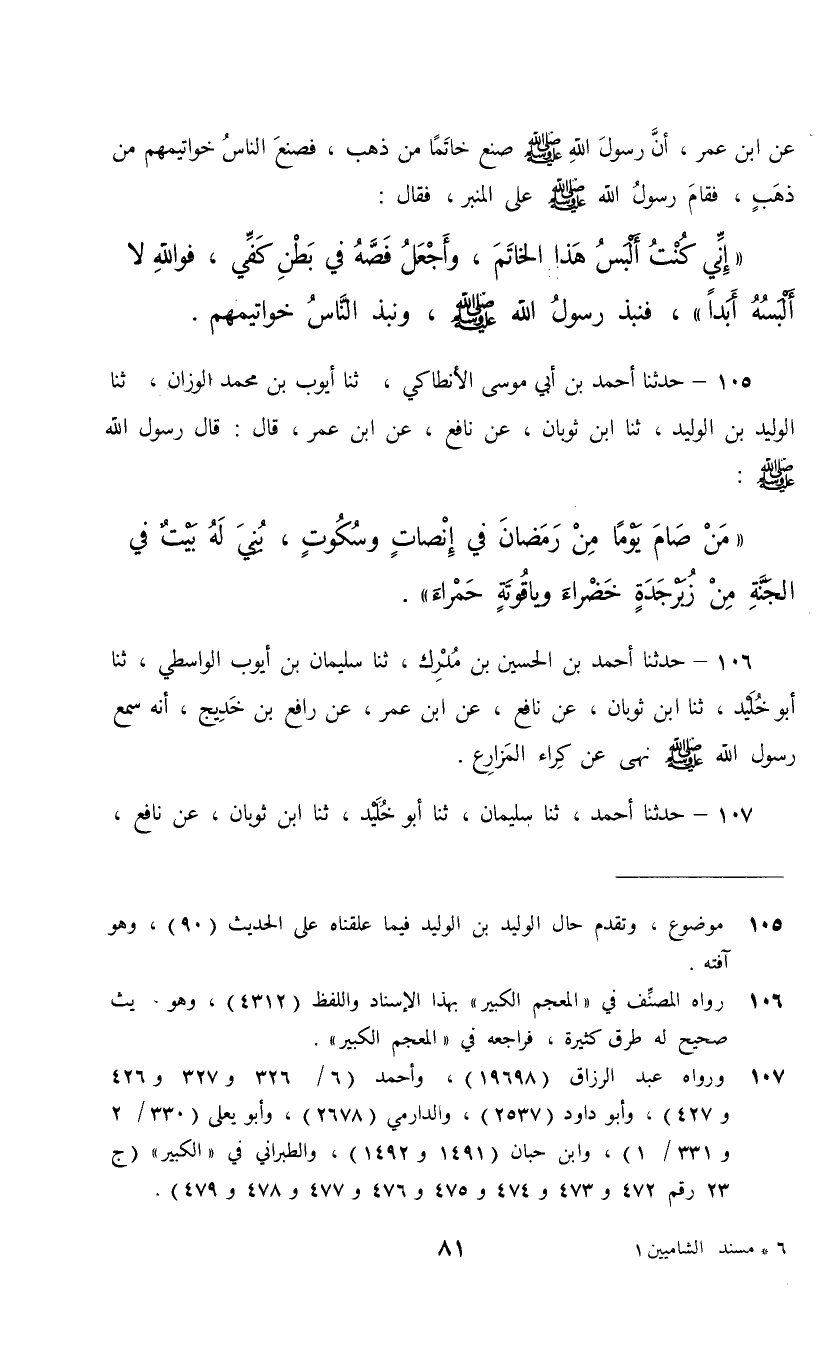 عن ابن عمر ، أنَّ رسولَ اللهِ ﷺ صنع خاتَمًا من ذهب ، فصنعَ الناسُ خواتيمهم من
ذهَبٍ ، فقامَ رسولُ الله ﷺ على المنبر ، فقال :
« إِنِّي كُنْتُ أَلْبَسُ هَذا الخاتَمَ ، وأَجْعَلُ فَصَّهُ في بَطْنِ كَفِّي ، فواللهِ لا
أَلْبَسُهُ أَبَداً » ، فنبذ رسولُ الله ﷺ ، ونبذ النَّاسُ خواتيمهم .
١٠٥ – حدثنا أحمد بن أبي موسى الأنطاكي ، ثنا أيوب بن محمد الوزان ، ثنا
الوليد بن الوليد ، ثنا ابن ثوبان ، عن نافع ، عن ابن عمر ، قال : قال رسول الله
ﷺ :
« مَنْ صَامَ يَوْمًا مِنْ رَمَضانَ في إِنْصاتٍ وسُكُوتٍ ، بُنِيَ لَهُ بَيْتٌ في
الجَنَّةِ مِنْ زُبَرْجَدَةٍ خَضْراءَ وياقُوتَةٍ حَمْراءَ » .
١٠٦ – حدثنا أحمد بن الحسين بن مُدْرِك ، ثنا سليمان بن أيوب الواسطي ، ثنا
أبو خُلَيْد ، ثنا ابن ثوبان ، عن نافع ، عن ابن عمر ، عن رافع بن خَدِيج ، أنه سمع
رسول الله ﷺ نهى عن كِراء المَزارِع .
١٠٧ – حدثنا أحمد ، ثنا سليمان ، ثنا أبو خُلَيْد ، ثنا ابن ثوبان ، عن نافع ،
١٠٥ موضوع ، وتقدم حال الوليد بن الوليد فيما علقناه على الحديث ( ٩٠ ) ، وهو
آفته .
١٠٦ رواه المصنِّف في « المعجم الكبير » بهذا الإسناد واللفظ ( ٤٣١٢ ) ، وهو يث
صحيح له طرق كثيرة ، فراجعه في « المعجم الكبير » .
١٠٧ ورواه عبد الرزاق ( ١٩٦٩٨ ) ، وأحمد ( ٦ / ٣٢٦ و ٣٢٧ و ٤٢٦
و ٤٢٧ ) ، وأبو داود ( ٢٥٣٧ ) ، والدارمي ( ٢٦٧٨ ) ، وأبو يعلى ( ٣٣٠ / ٢
و ٣٣١ / ١ ) ، وابن حبان ( ١٤٩١ و ١٤٩٢ ) ، والطبراني في « الكبير » ( ج
٢٣ رقم ٤٧٢ و ٤٧٣ و ٤٧٤ و ٤٧٥ و ٤٧٦ و ٤٧٧ و ٤٧٨ و ٤٧٩ ) .
٨١
٦ * مسند الشاميين ١